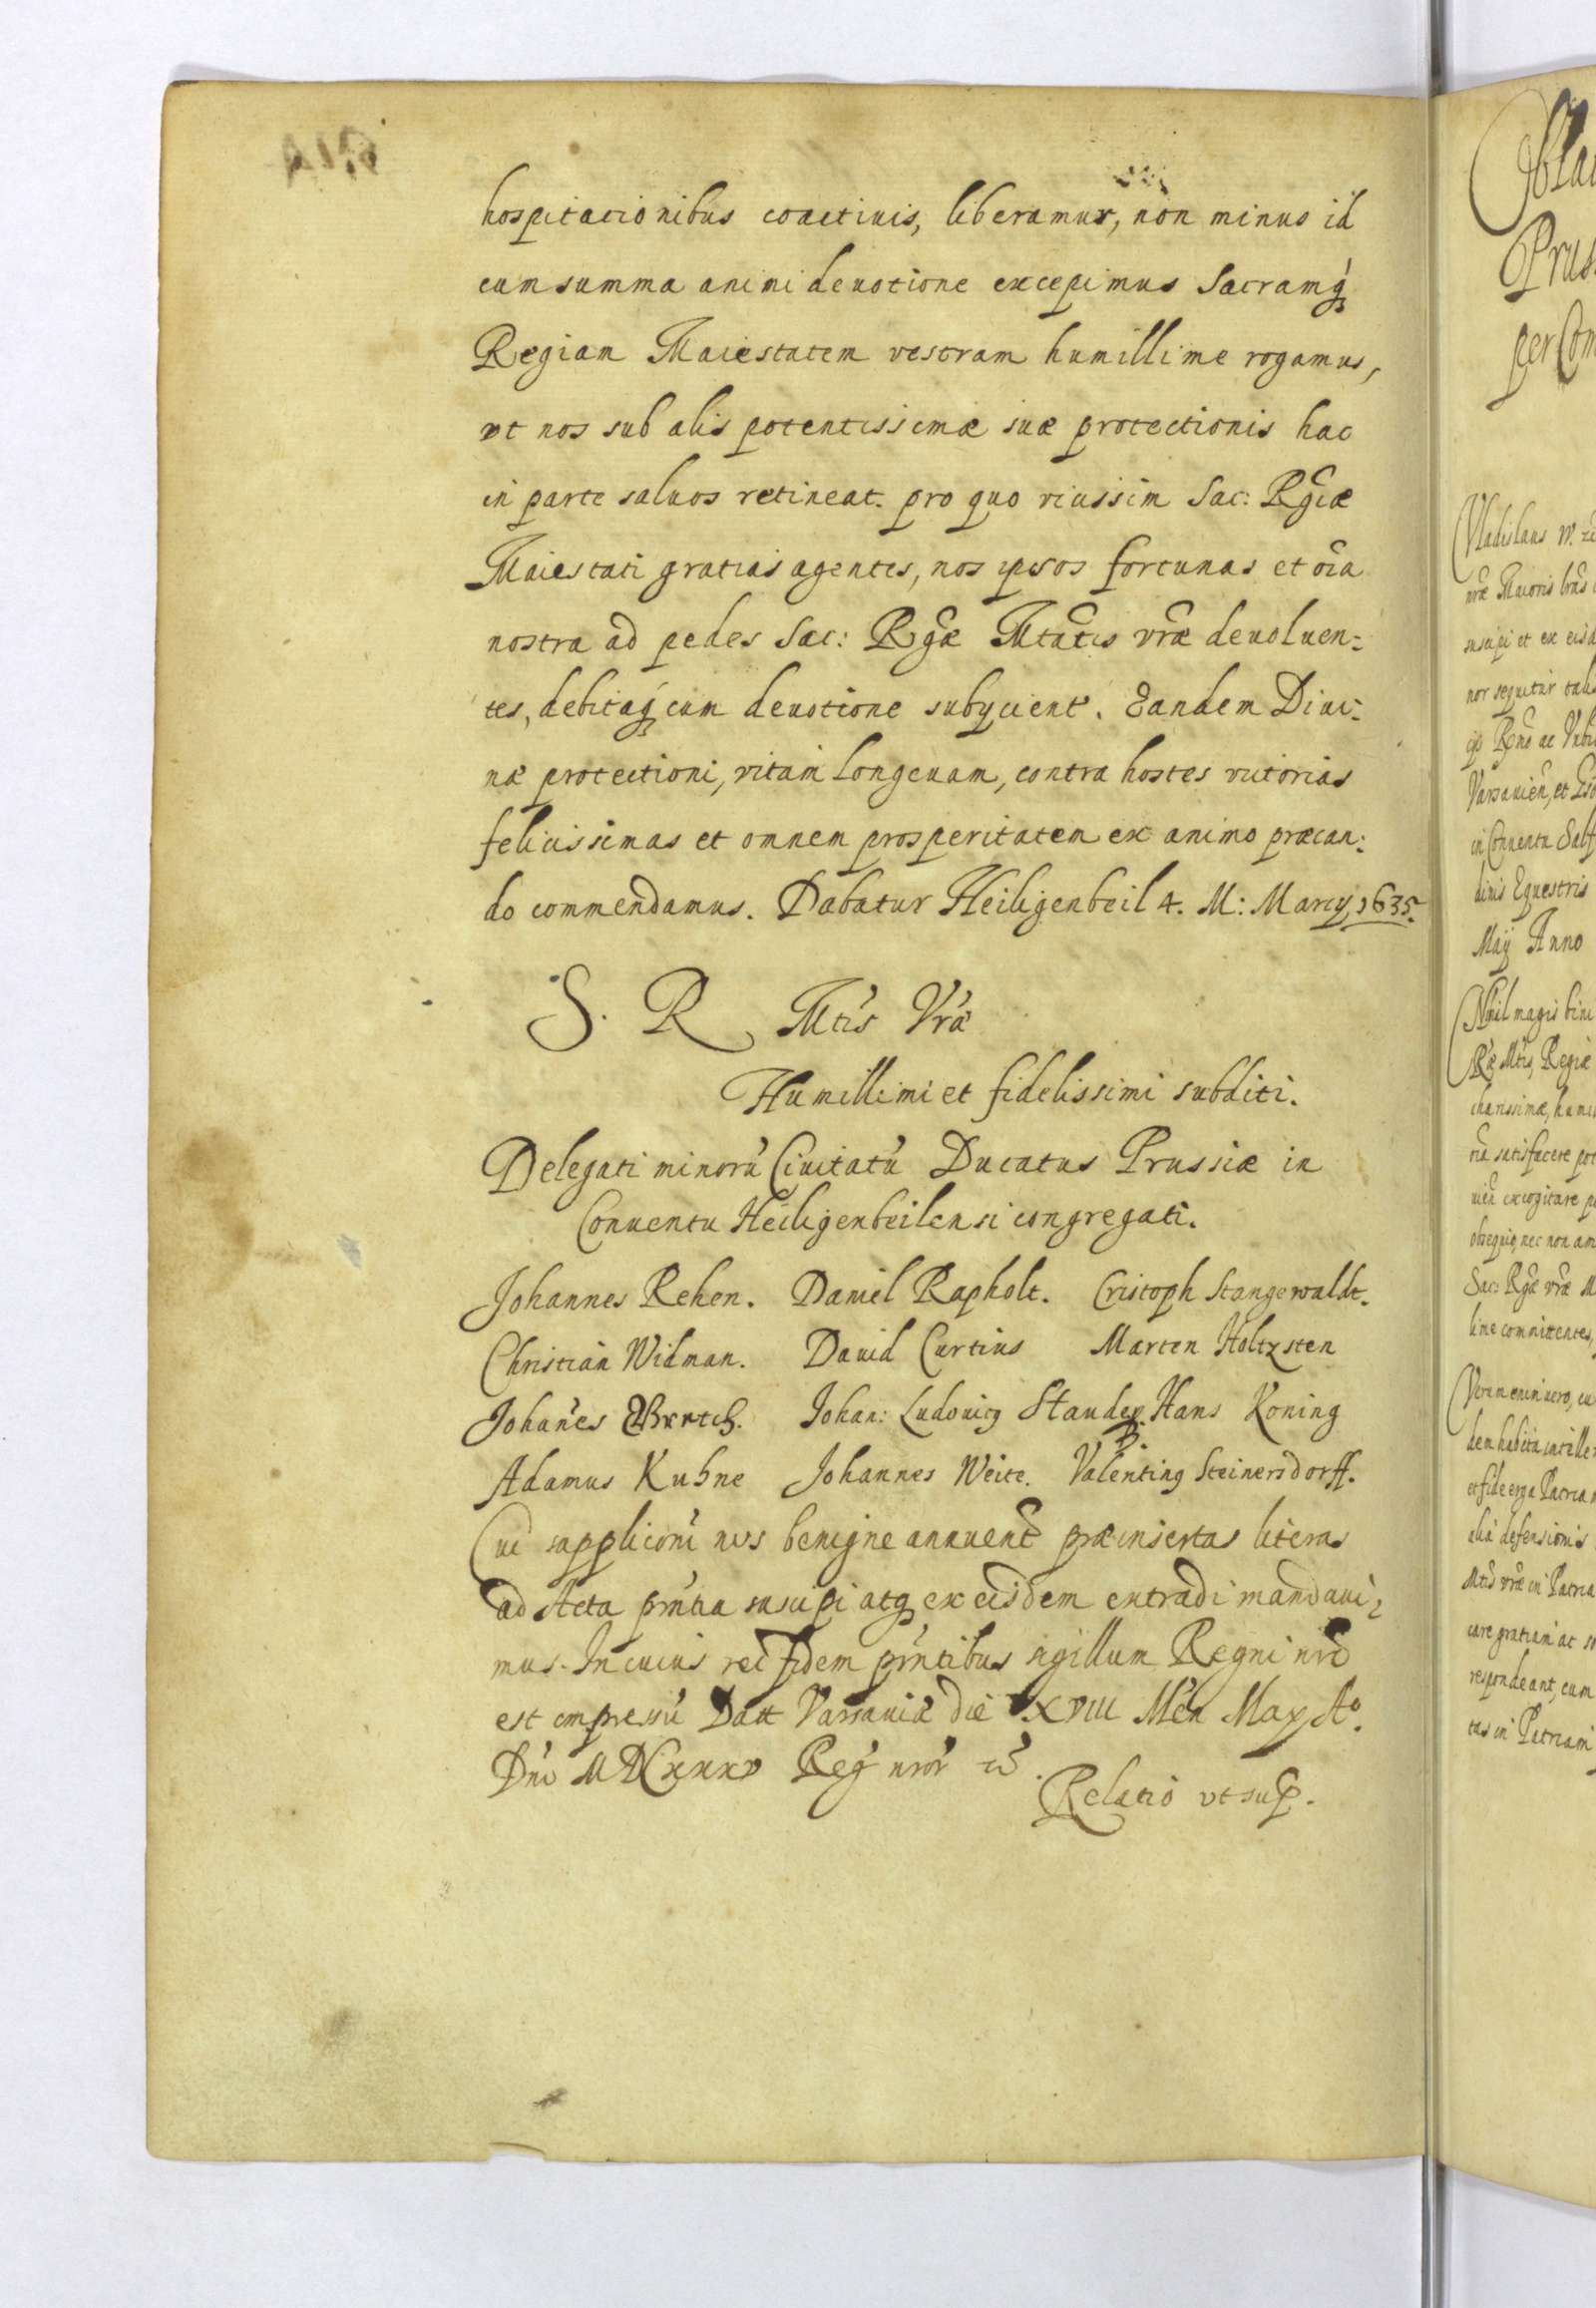 hospitationibus coactiuis, liberamur, non minus id
cum summa animi deuotione excepimus Sacramq́
Regiam Maiestatem vestram humillime rogamus,
vt nos sub alis potentissimæ suæ protectionis hac
in parte saluos retineat. pro quo vicissim Sac: Rgiæ
Maiestati gratias agentes, nos ipsos fortunas et oĩa
nostra ad pedes Sac: Rgæ Mtatis vr̃æ deuoluen:
tes, debitaq́ cum deuotione subijcient. Eandem Diui:
næ protectioni, vitam longeuam, contra hostes victorias
felicissimas et omnem prosperitatem ex animo præcan:
do commendamus. Dabatur Heiligenbeil 4. M: Marcij 1635.
S. R Mtis Vræ
Humillimi et fidelissimi subditi.
Delegati minorũ Ciuitatũ Ducatus Prussiæ in
Conuentu Heiligenbeilensi congregati.
Johannes Rehen. Daniel Rapholt. Cristoph Stangewaldt.
Christian Widman. Dauid Curtius Marten Holtzsten
Johañes Johan: Ludouicq Stander Hans Koning
Adamus Kuhne Johannes Weite. Valentinq Steinersdorff.
Cui supplicõni nos benigne annuent præinsertas literas
ad Acta pñtia suscipi atq ex eisdem extradi mandaui:
mus. In cuius rei fidem pñtibus sigillum Regni nrĩ
est impressũ Datt Varsauiæ die XVIII Men̄ Maij Aº.
Dñi MDCXXXV Reg̃ nrõr
Relatio vt sup.

Prus
per Com
Vladislaus
suscipi et ex eisd
nor sequitur talis
Varsauieñ, et
in Conuentu
dinis Equestris
Maij Anno
Nihil magis
Ræ Mtis, Regiæ
charissimæ, humi
ria satisfacere pot
excogitare p
obsequio, nec non am
Sac: Rgæ vræ M
line committentes,
Verum enim uero, cu
et fide erga Patriam
defensionis
Mtis vræ in Patria
care gratiam ac
respondeant, cum
tas in Patriam